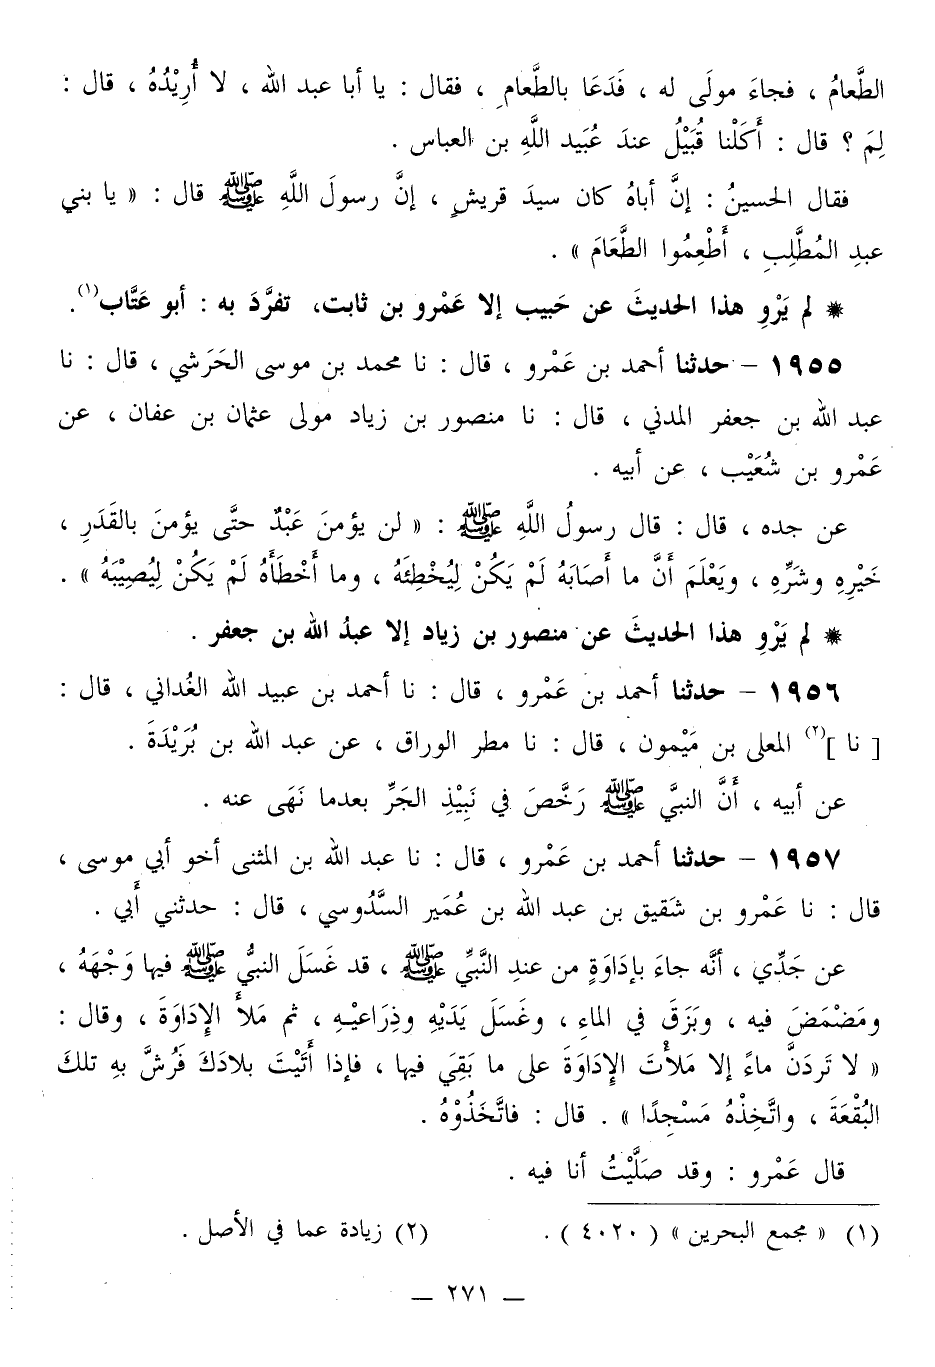 الطَّعامُ ، فجاءَ مولَى له ، فَدَعَا بالطَّعامِ ، فقال : يا أبا عبد الله ، لا أُرِيْدُهُ ، قال :
لِمَ ؟ قال : أَكَلْنا قُبَيْلُ عندَ عُبَيد اللَّهِ بن العباس .
فقال الحسينُ : إنَّ أباهُ كان سيدَ قريشٍ ، إنَّ رسولَ اللَّهِ ﷺ قال : « يا بني
عبدِ المُطَّلِبِ ، أَطْعِمُوا الطَّعَامَ » .
* لم يَرْوِ هذا الحديثَ عن حَبيب إلا عَمْرو بن ثابت، تفرَّدَ به : أبو عَتَّاب(١).
١٩٥٥ – حدثنا أحمد بن عَمْرو ، قال : نا محمد بن موسى الحَرَشي ، قال : نا
عبد الله بن جعفر المدني ، قال : نا منصور بن زياد مولى عثمان بن عفان ، عن
عَمْرو بن شُعَيْب ، عن أبيه .
عن جده ، قال : قال رسولُ اللَّهِ ﷺ : « لن يؤمنَ عَبْدٌ حتَّى يؤمنَ بالقَدَرِ ،
خَيْرِهِ وشَرِّهِ ، ويَعْلَمَ أَنَّ ما أَصَابَهُ لَمْ يَكُنْ لِيُخْطِئَهُ ، وما أَخْطَأَهُ لَمْ يَكُنْ لِيُصِيْبَهُ » .
* لم يَرْوِ هذا الحديثَ عن منصور بن زياد إلا عبدُ الله بن جعفر .
١٩٥٦ – حدثنا أحمد بن عَمْرو ، قال : نا أحمد بن عبيد الله الغُداني ، قال :
[ نا ](٢) المعلى بن مَيْمون ، قال : نا مطر الوراق ، عن عبد الله بن بُرَيْدَةَ .
عن أبيه ، أَنَّ النبيَّ ﷺ رَخَّصَ في نَبِيْذِ الجَرِّ بعدما نَهَى عنه .
١٩٥٧ – حدثنا أحمد بن عَمْرو ، قال : نا عبد الله بن المثنى أخو أبي موسى ،
قال : نا عَمْرو بن شَقيق بن عبد الله بن عُمَير السَّدُوسي ، قال : حدثني أَبي .
عن جَدِّي ، أنَّه جاءَ بإدَاوَةٍ من عندِ النَّبيِّ ﷺ ، قد غَسَلَ النبيُّ ﷺ فيها وَجْهَهُ ،
ومَضْمَضَ فيه ، وبَزَقَ في الماءِ ، وغَسَلَ يَدَيْهِ وذِرَاعيْهِ ، ثم مَلأَ الإِدَاوَةَ ، وقال :
« لا تَرِدَنَّ ماءً إلا مَلأْتَ الإِدَاوَةَ على ما بَقِيَ فيها ، فإذا أَتَيْتَ بلادَكَ فَرُشَّ بهِ تلكَ
البُقْعَةَ ، واتَّخِذْهُ مَسْجِدًا » . قال : فاتَّخَذُوْهُ .
قال عَمْرو : وقد صَلَّيْتُ أنا فيه .
(١) « مجمع البحرين » ( ٤٠٢٠ ) . (٢) زيادة عما في الأصل .
— ٢٧١ —